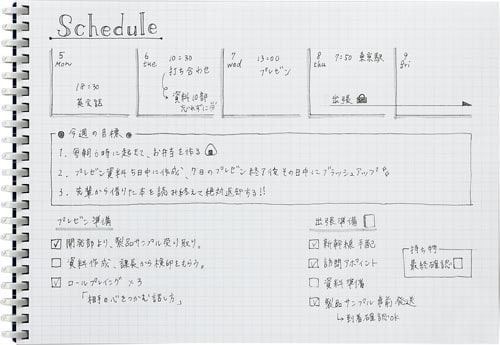 Schedule
5
Mon
18:30
英文話
6
tue
10:30
打ち合わせ
資料10部
忘れずに
7
wed
13:00
プレゼン
8
thu
7:50 東京駅
出張
9
fri
今週の目標
1. 毎朝6時に起きて、お弁当を作る
2. プレゼン資料5日中に作成、7日のプレゼン終了後その日中にブラッシュアップ
3. 先輩から借りた本を読み終えて絶対返却する!!
プレゼン準備
開発部より、製品サンプル受け取り。
資料作成、課長から検印をもらう。
ロールプレイング ×3
「相手の心をつかむ話し方」
出張準備
新幹線手配
訪問アポイント
資料準備
製品サンプル事前発送
到着確認OK
持ち物
最終確認